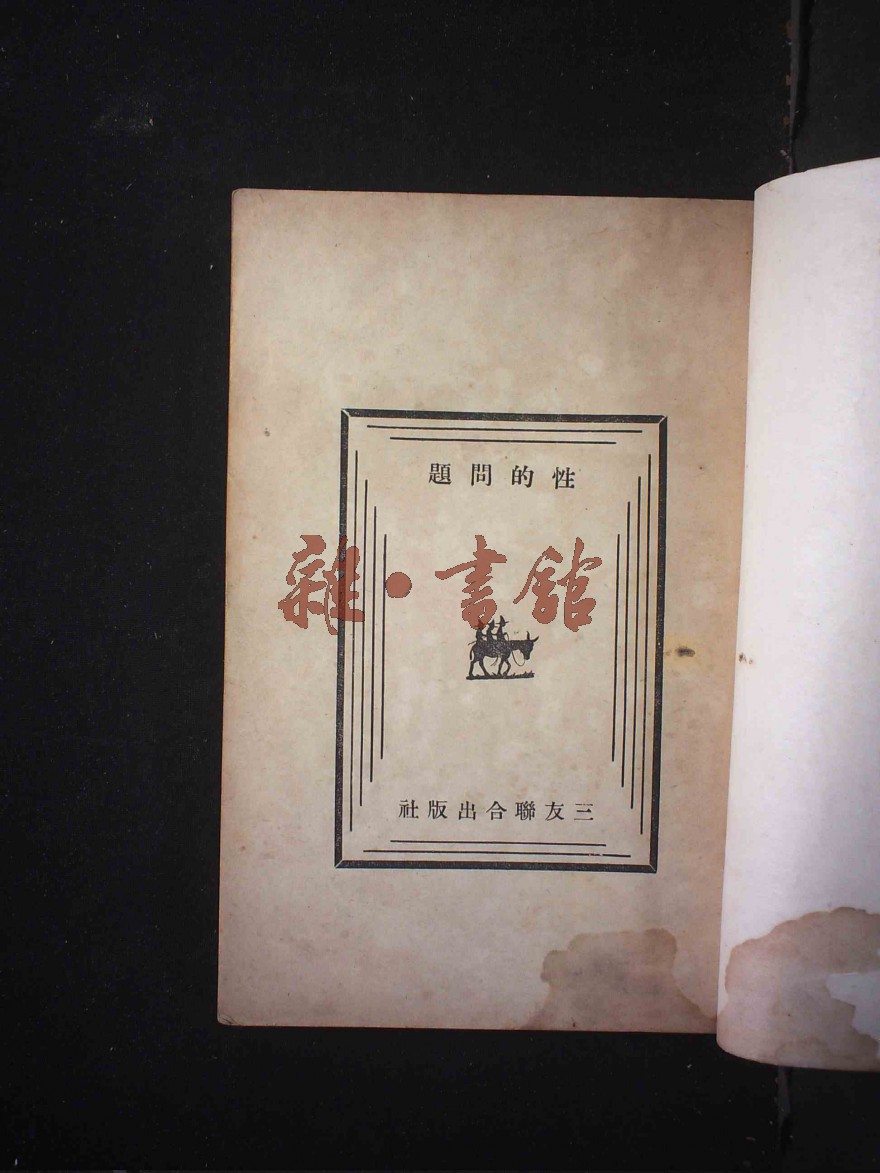 性的問題
雜·書館
三友聯合出版社